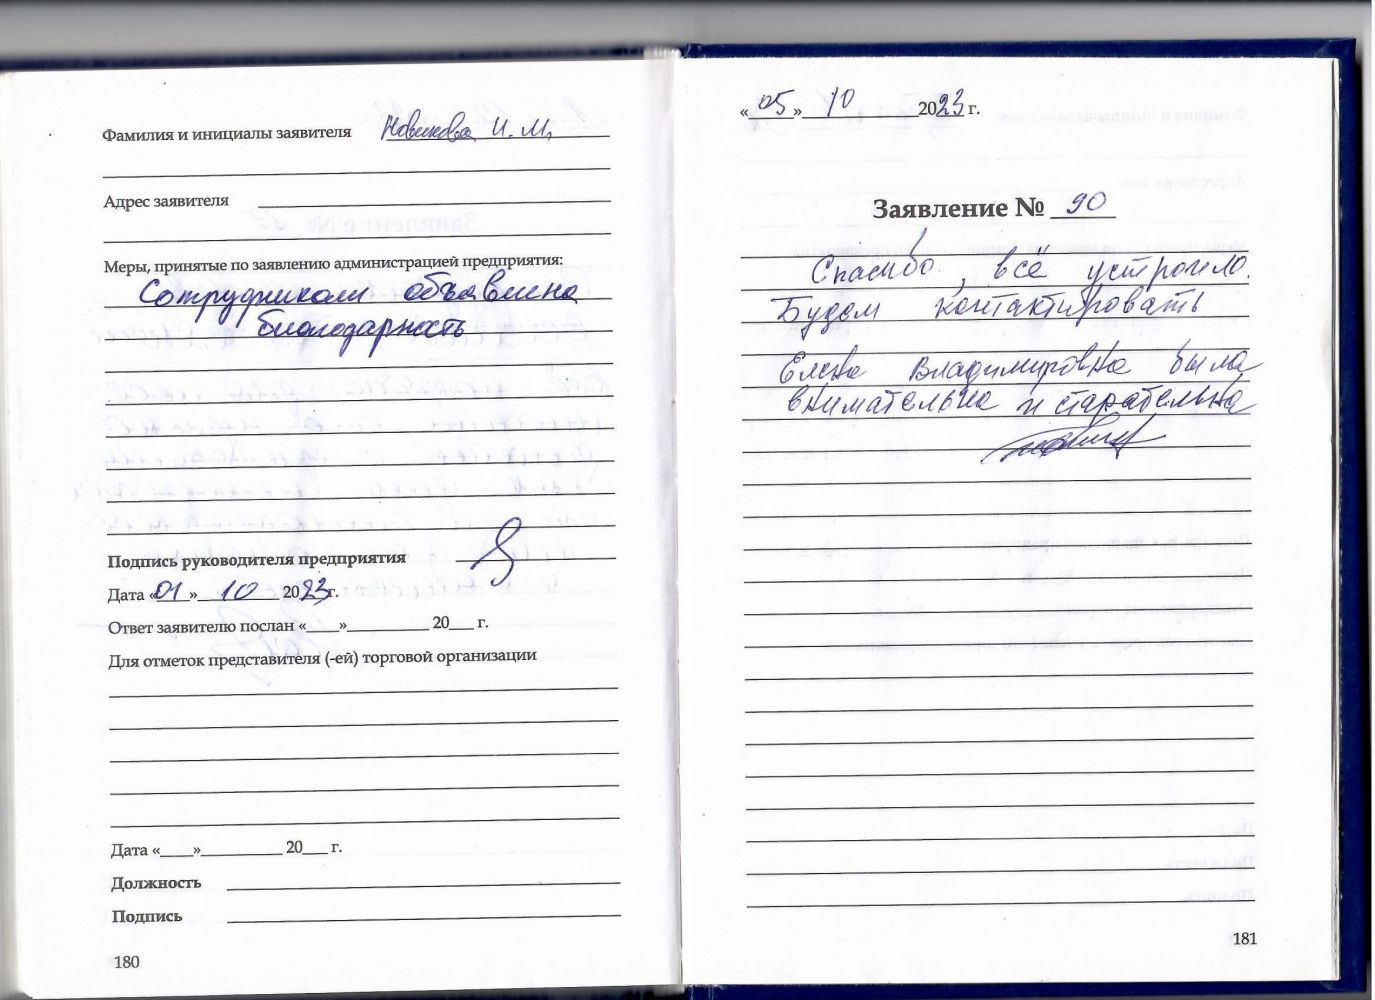 Фамилия и инициалы заявителя Новикова И. М.
Адрес заявителя
Меры, принятые по заявлению администрацией предприятия:
Сотрудникам объявлена
благодарность
Подпись руководителя предприятия
Дата «01» 10 2023г.
Ответ заявителю послан «___»__________ 20___ г.
Для отметок представителя (-ей) торговой организации
Дата «____»__________ 20___ г.
Должность
Подпись
180
«05» 10 2023 г.
Заявление № 90
Спасибо, всё устроило.
Будем контактировать
Елена Владимировна была
внимательна и старательна
181